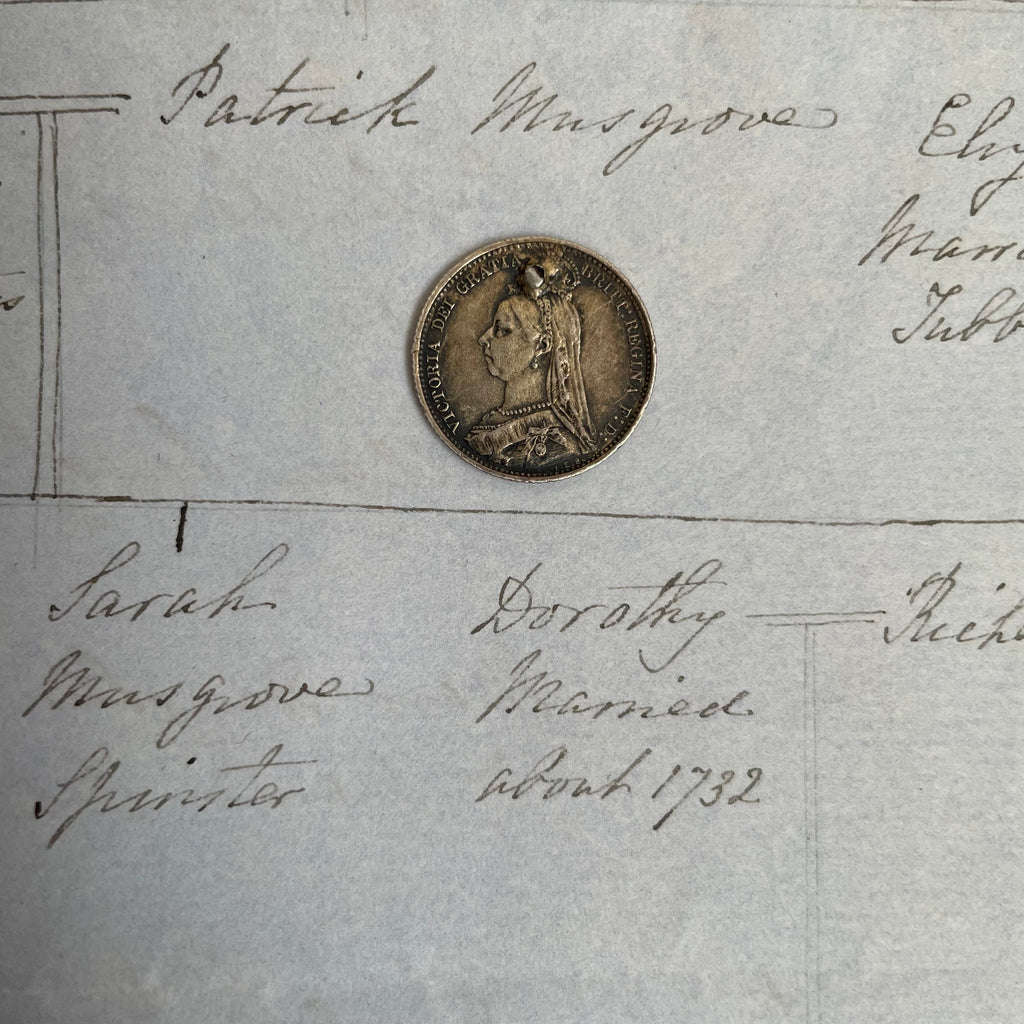 Patrick Musgrove
Marr
Tubb
VICTORIA DEI GRATIA BRITT: REGINA F: D:
J.E.B.
Sarah
Musgrove
Spinster
Dorothy
Married
about 1732
Rich